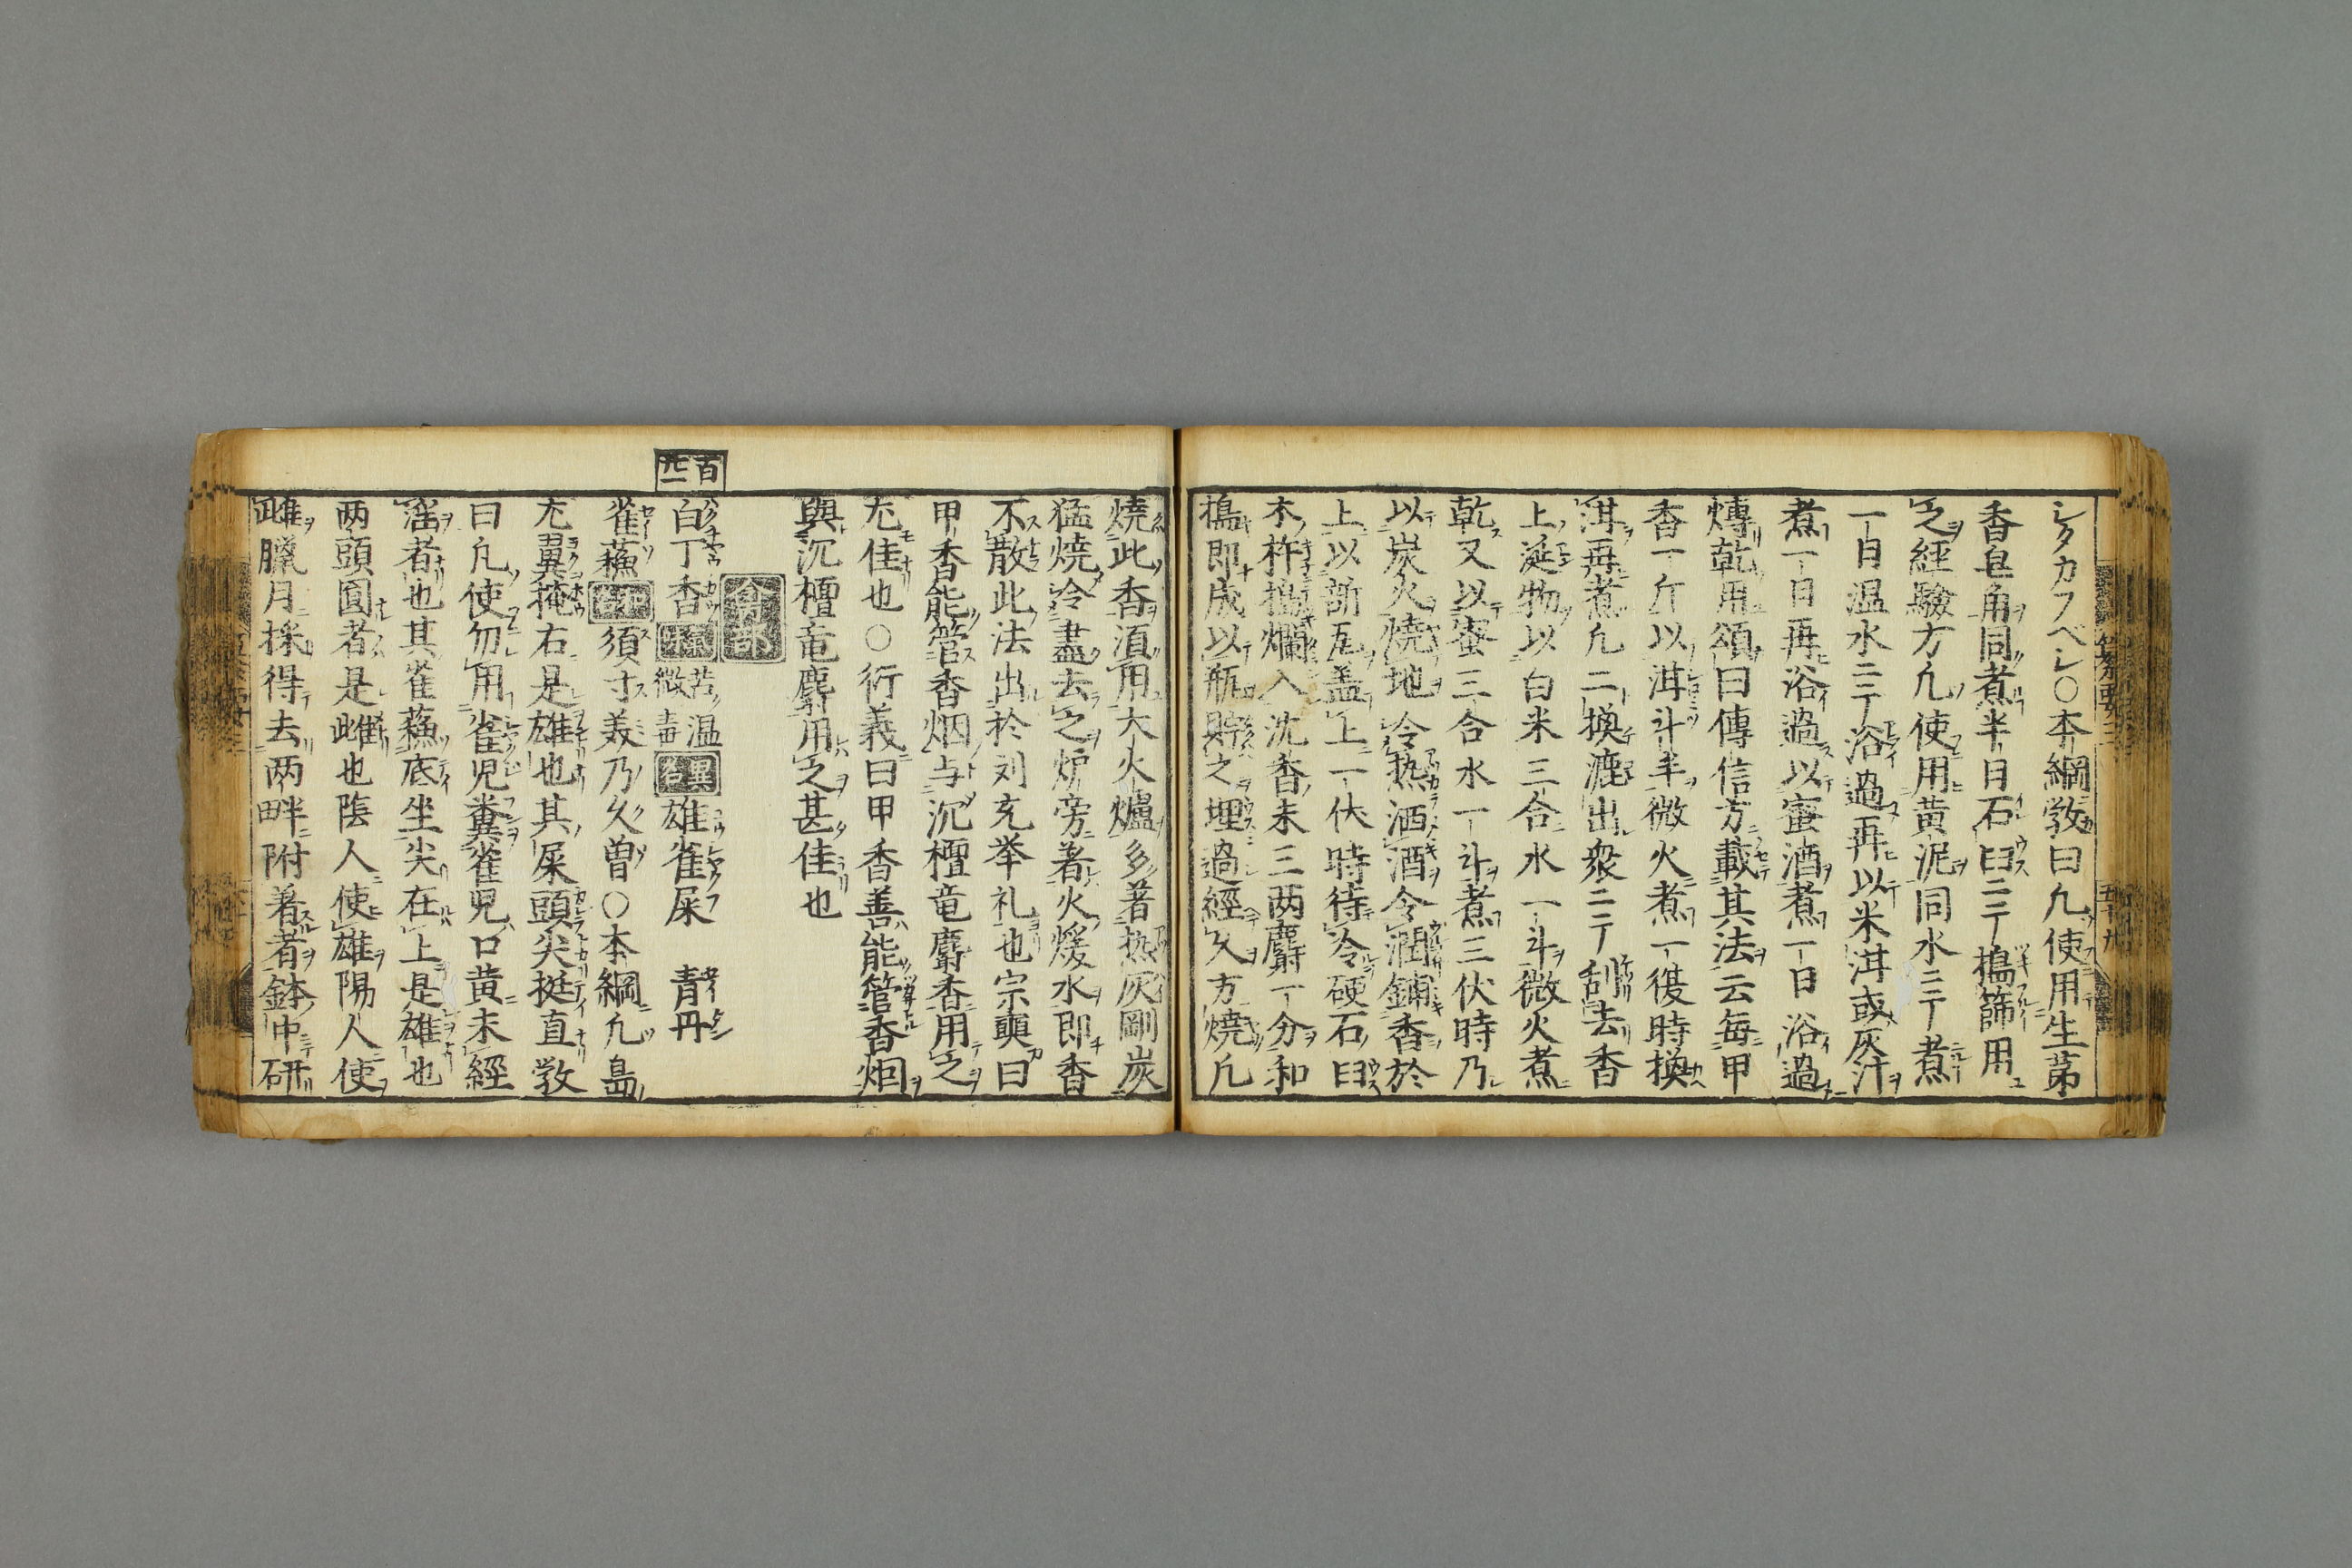 シタカフベシ○本綱敩曰凢使用生茅
香皂角同煮半日石臼ニテ搗篩用
之經驗方凢使用黄泥同水ニテ煮
一日温水ニテ浴過再以米泔或灰汁
煮一日再浴過以蜜酒煮一日浴過
煿乾用頌曰傳信方載其法云毎甲
香一斤以泔斗半微火煮一復時換
泔再煮凢二換漉出衆ニテ刮去香
上涎物以白米三合水一斗微火煮
乾又以蜜三合水一斗煮三伏時乃
以炭火燒地令热洒酒令潤鋪香於
上以新瓦盖上一伏時待冷硬石臼
木杵搗爛入沈香末三两麝一分和
搗即成以瓶貯之埋過經久方燒凢
燒此香湏用大火爐多著热灰剛炭
猛燒冷盡去之炉旁著火煖水即香
不散此法出於刘兖举礼也宗奭曰
甲香能管香烟与沉檀竜麝香用之
尤佳也○衍義曰甲香善能管香烟
與沉檀竜麝用之甚佳也
禽部
百四二
白丁香 氣味 苦温微毒 異名 雄雀屎 青丹
雀蘓 須寸美乃久曽○本綱凢鳥
尤翼掩右是雄也其屎頭尖挺直敩
曰凢使勿用雀児糞雀児口黄未經
滛者也其雀蘓底坐尖在上是雄也
两頭圓者是雌也陰人使雄陽人使
雌臘月採得去两畔附著者鉢中研